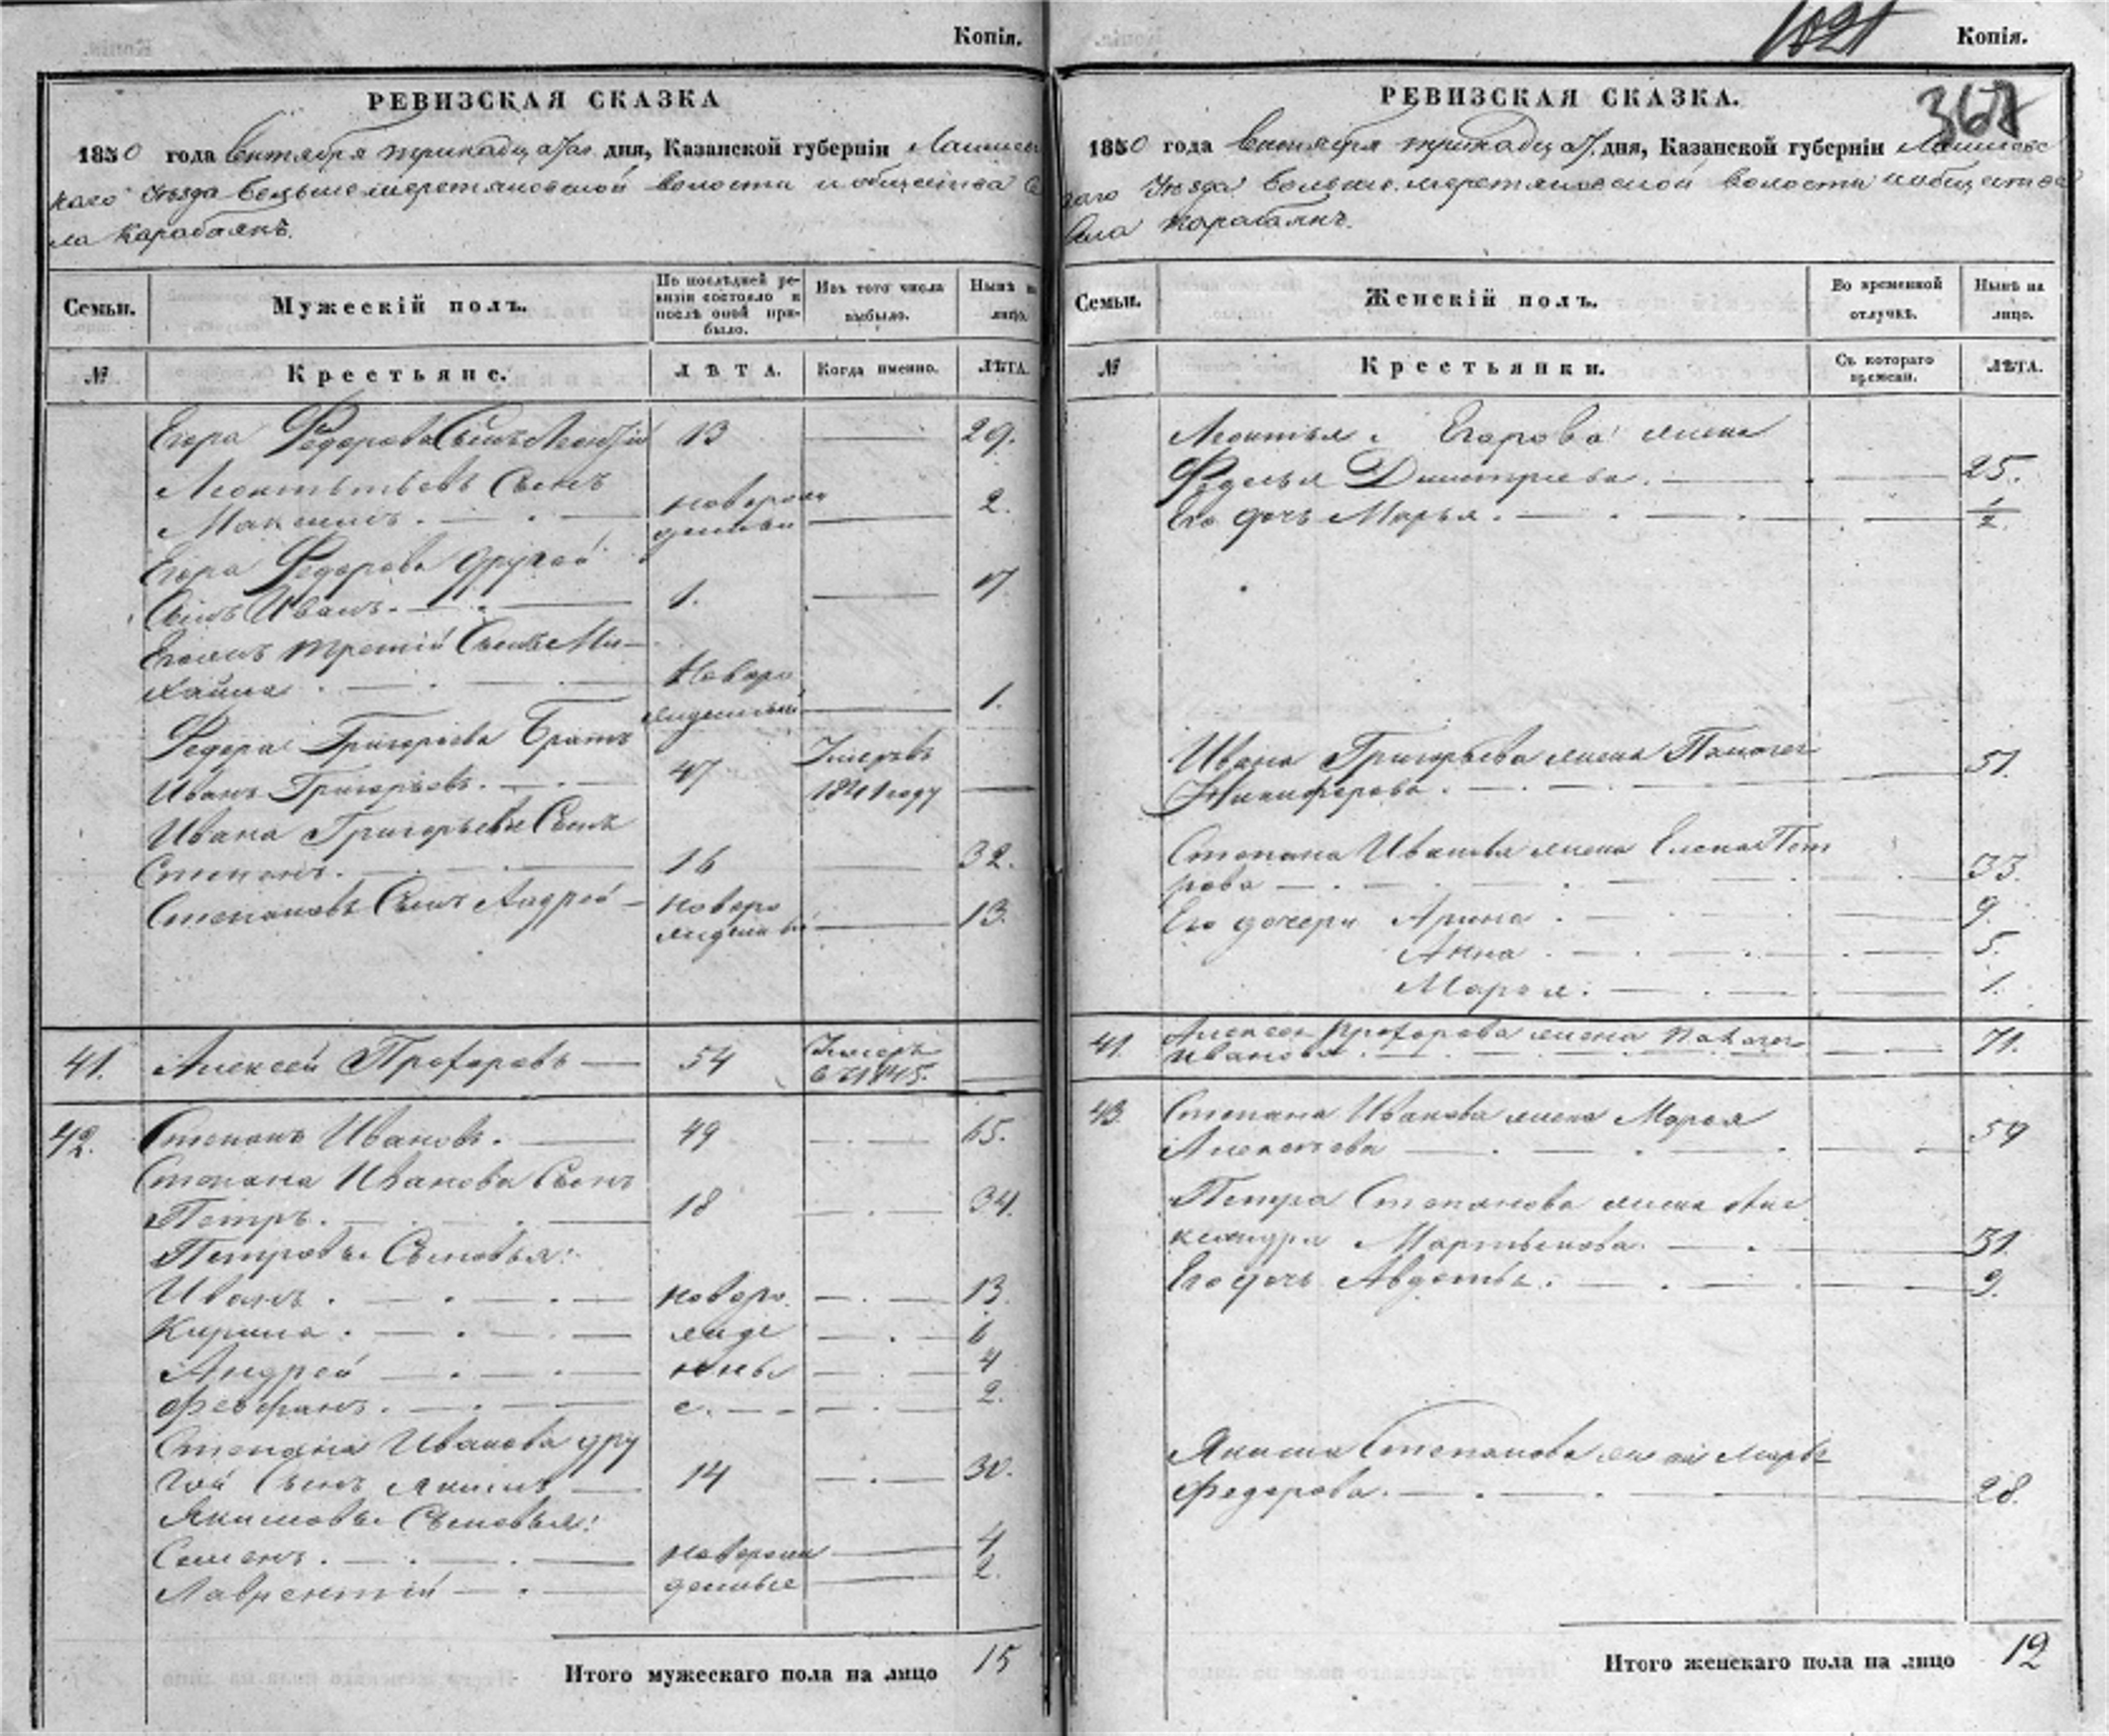 Копія.
РЕВИЗСКАЯ СКАЗКА
1850 года Сентября тринадцатаго дня, Казанской губерніи Лаишев
скаго Уѣзда Большемеретяковской волости и общества Се
ла Карабаянъ.
Семьи.
Мужескій полъ.
По послѣдней ре-
визіи состояло и
послѣ оной при-
было.
Изъ того числа
выбыло.
Нынѣ на
лицо.
№
Крестьяне.
ЛѢТА.
Когда именно.
ЛѢТА.
Егора Федорова Сынъ Леонтій 13 — 29.
Леонтьевъ Сынъ
Максимъ. новорож 2.
денный
Егора Федорова другой
Сынъ Иванъ. 1. 17
Егоровъ третій Сынъ Ми-
хаила Новоро 1.
жденный
Федора Григорьева Братъ Умеръ въ
Иванъ Григорьевъ. 47 1841 году —
Ивана Григорьева Сынъ
Степанъ. 16 32.
Степановъ Сынъ Андрей новоро 13.
жденный
41. Алексей Прохоровъ — 54 Умеръ
въ 1845. —
42. Степанъ Ивановъ. 49 65.
Степана Иванова Сынъ
Петръ. 18 34.
Петровы Сыновья:
Иванъ. новоро 13.
Кирила. жде 6
Андрей нны 4
Феофанъ. е. 2.
Степана Иванова дру
гой Сынъ Якимъ 14 30.
Якимовы Сыновья:
Семенъ. новорож 4
Лаврентий денные 2.
Итого мужескаго пола на лицо 15
Копія.
367
РЕВИЗСКАЯ СКАЗКА.
1850 года Сентября тринадцат. дня, Казанской губерніи Лаишевс
каго Уѣзда Большемеретяковской волости и общества
Села Карабаянъ.
Семьи.
Женскій полъ.
Во временной
отлучкѣ.
Нынѣ на
лицо.
№
Крестьянки.
Съ котораго
времени.
ЛѢТА.
Леонтья Егорова жена
Федосья Димитриева. 25.
Его дочь Марья. 1/2
Ивана Григорьева жена Пелагея
Никифорова. 51.
Степана Иванова жена Елена Пет
рова 33.
Его дочери Арина 9.
Анна 5.
Марья. 1.
41. Алексея Прохорова жена Пелагея
Иванова 71.
43. Степана Иванова жена Марья
Алексеева 59
Петра Степанова жена Але
ксандра Мартынова. 31.
Его дочь Авдотья. 9.
Якима Степанова жена Марья
Федорова. 28.
Итого женскаго пола на лицо 12